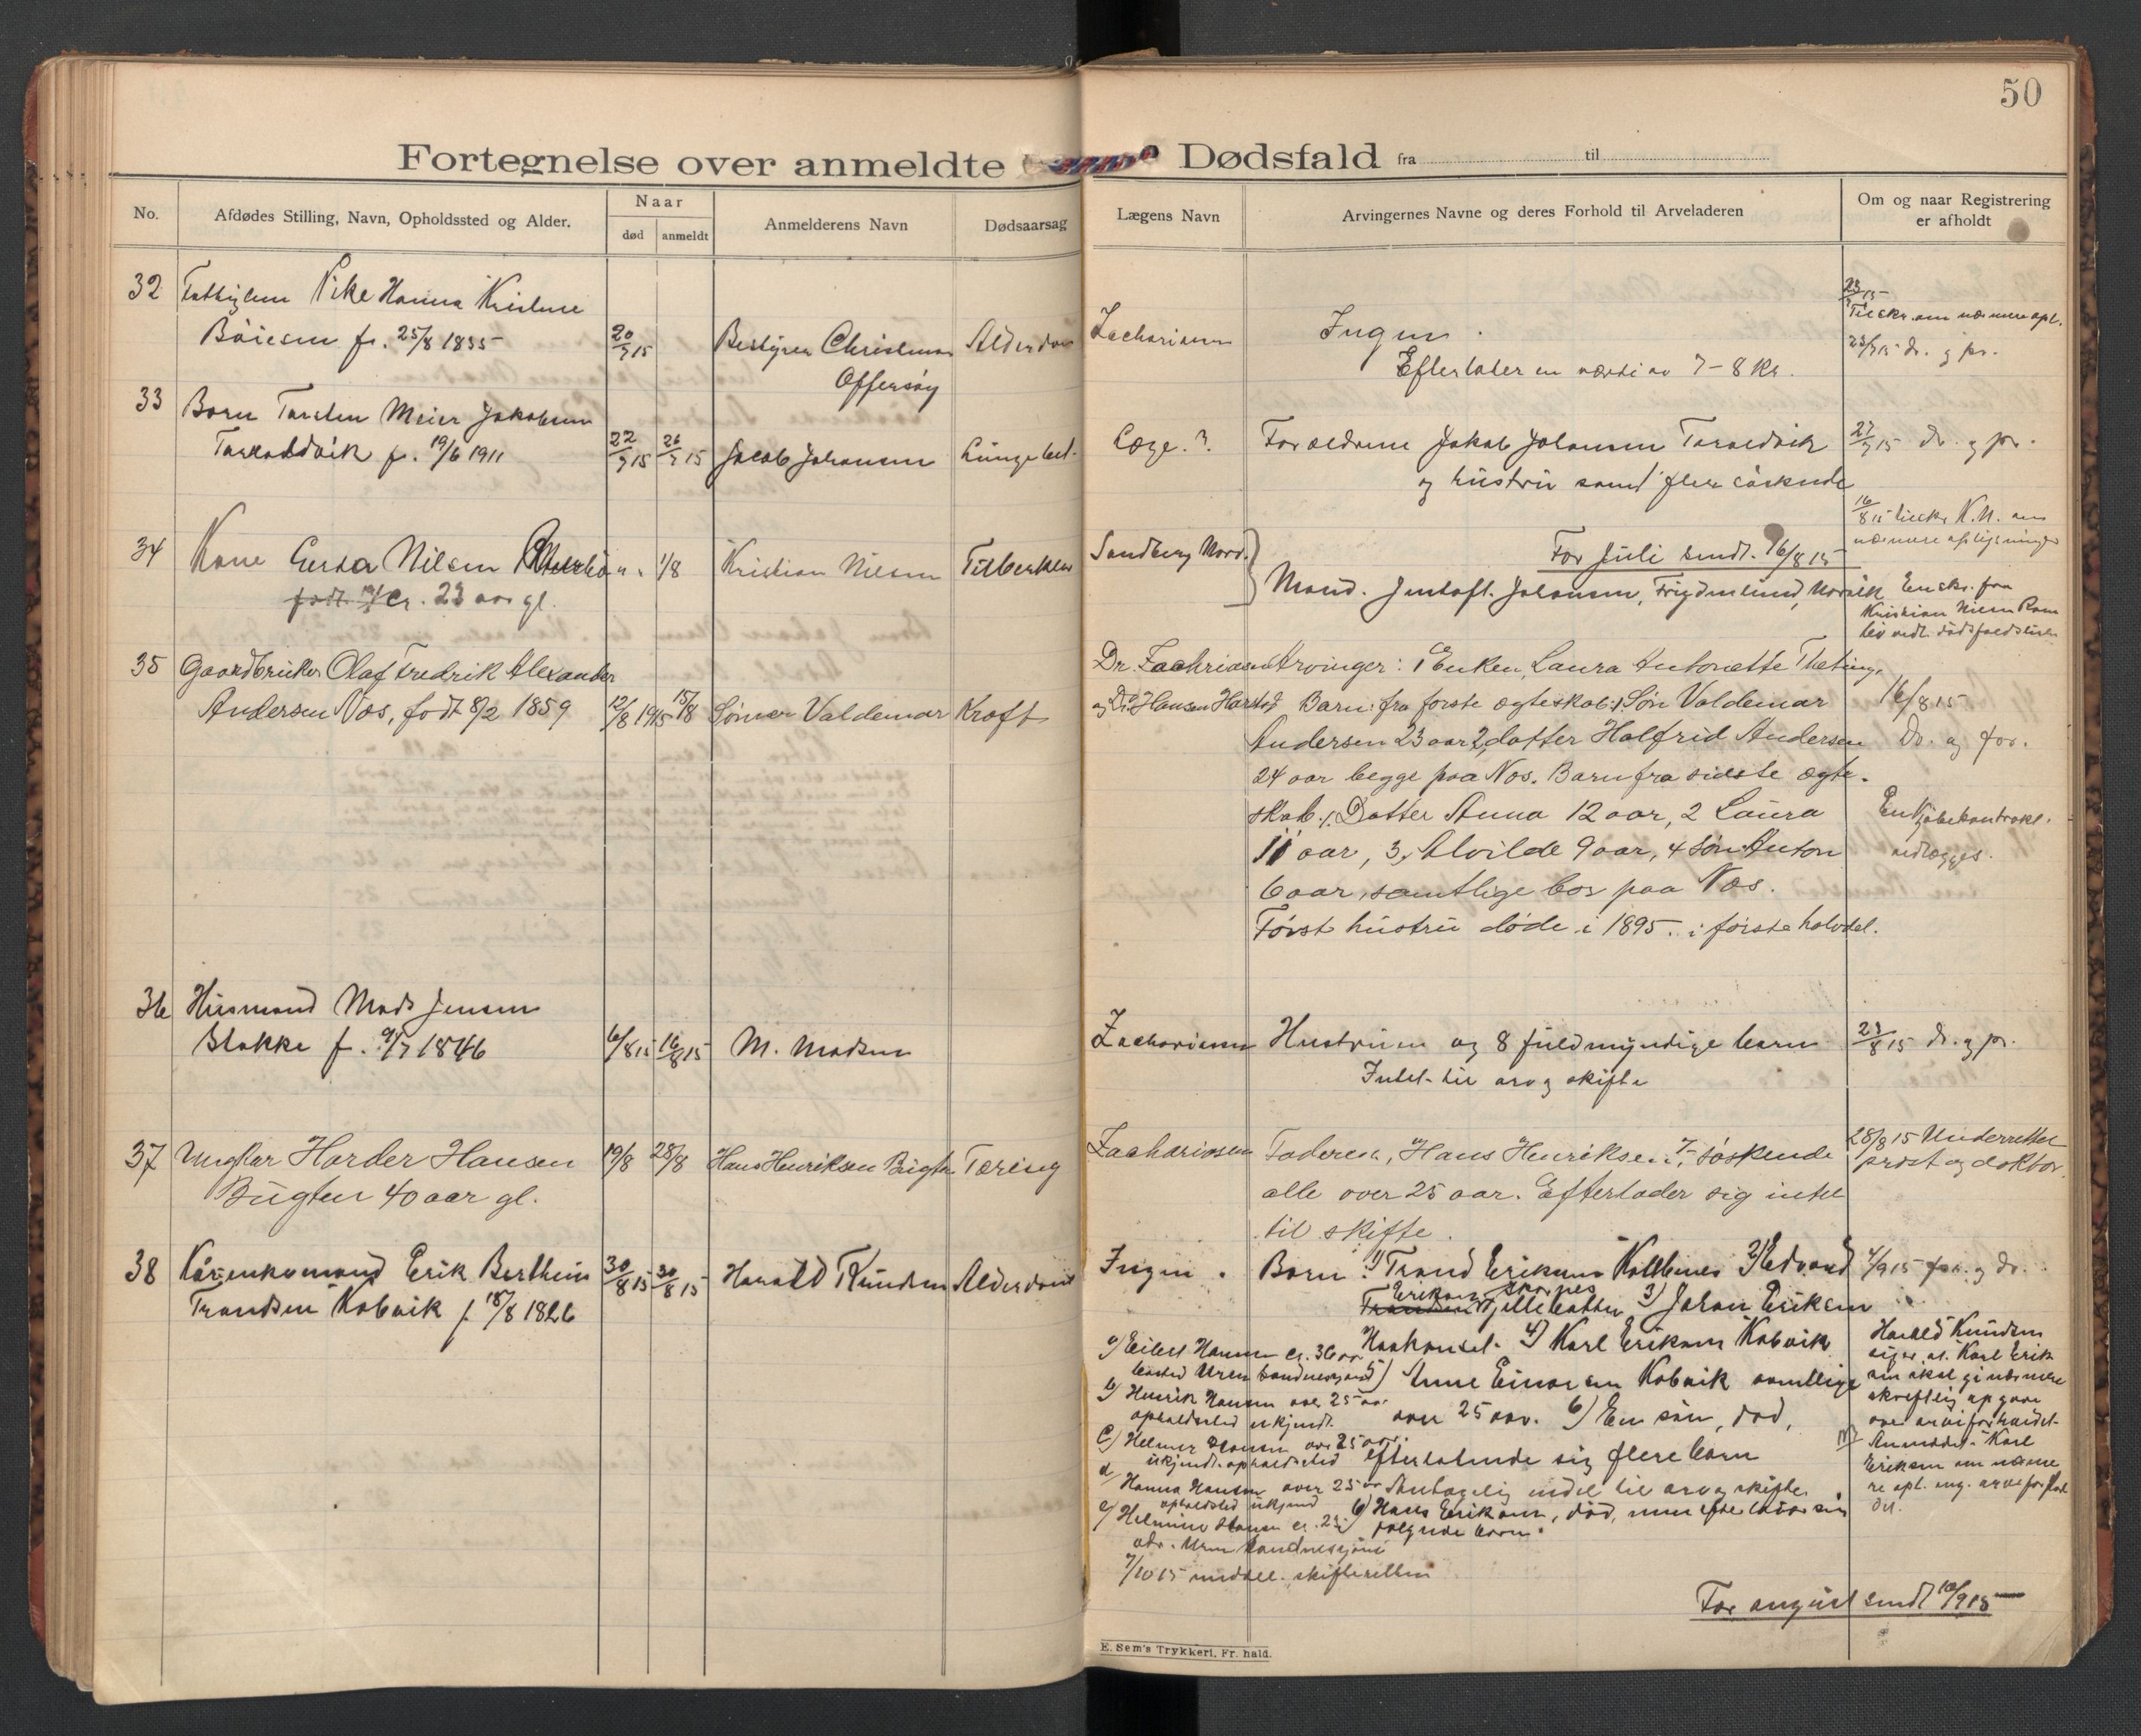 50
Fortegnelse over anmeldte Dødsfald fra til
No.
Afdødes Stilling, Navn, Opholdssted og Alder.
Naar
død
anmeldt
Anmelderens Navn
Dødsaarsag
Lægens Navn
Arvingernes Navne og deres Forhold til Arveladeren
Om og naar Registrering
er afholdt
32 Fattiglem Pike Hanna Kristine
Böiesen f. 25/8 1835 20/7 15 Bestyrer Christensen Alderdom
Offersöy
Zachariassen Ingen.
Efterlater en værdi av 7-8 Kr.
23/7 15
Tilskr. om nærmere opl.
23/7 15 dr. og pr.
33 Barn Torsten Meier Jakobsen
Taraldvik f. 19/6 1911 22/7 15 26/7 15 Jacob Johansen Lungebet.
Læge.? Forældrene Jakob Johansen Taraldvik
og hustru samt flere söskende
27/7 15 dr. og pr.
34 Kone Gerda Nilsen 1/8 Kristian Nilsen Tuberkler
födt cr. 23 aar gl.
Sandberg Narv.
For Juli sendt. 16/8 15
Mand. Gustaf. Johansen, Frydenlund, Narvik
16/8 15 tilskr. K.N. om
nærmere oplysninger
En skr. fra
Kristian Nilsen Ram
blev vedl. dödsfaldslisten
35 Gaardbruker Olaf Fredrik Alexander
Andersen Næs, født 8/2 1859 12/8 1915 15/8 Sönnen Valdemar Kræft
Dr. Zachriasen
og Dr. Hansen Harstad
Arvinger: Enken, Laura Antonette Theting,
Barn: fra første ægteskab: 1. Søn Valdemar
Andersen 23 aar 2, datter Halfrid Andersen
24 aar begge paa Næs. Barn fra sidste ægte-
skab. 1. Datter Anna 12 aar, 2 Laura
11 aar, 3, Alvilde 9 aar, 4 Søn Anton
6 aar, samtlige bor paa Næs.
Først hustru døde i 1895. i første halvdel.
16/8 15
Dr. og for.
En Kjøbekontrakt.
vedlægges.
36 Husmand Mads Jensen
Stokke f. 9/7 1846 6/8 15 16/8 15 M. Madsen
Zachariassen Hustruen og 8 fuldmyndige barn
Intet til arv og skifte
23/8 15 dr. og pr.
37 Ungkar Harder Hansen 19/8 28/8 Hans Henriksen Bugten Tæring
Bugten 40 aar gl.
Zachariasen Faderen, Hans Henriksen, 7 søskende
alle over 25 aar. Efterlader sig intet
til skifte.
28/8 15 Underrettet
prost og doktor.
38 Kårenkomand Erik Berthin
Trondsen Kobvik f. 18/8 1826 30/8 15 30/8 15 Harald Knudsen Alderdom
Ingen. Barn: 1) Trond Eriksen Kallbenes 2) Edvard
Eriksen
Trondsen 3) Johan Eriksen
4) Karl Eriksen Kobvik
5) Anne Einarsen Kobvik samtlige
over 25 aar. 6) En sön, död,
efterlatende sig flere barn
Antagelig intet til arv og skifte.
6) Hans Eriksen, död, men efterlater sin
fölgende barn.
4/9 15 for. og dr.
Harald Knudsen
siger at Karl Erik
sen skal gi nærmere
skriftlig opgave
over arveforholdet.
Anmodet Karl
Eriksen om nærme
re opl. ang. arveforhol
det.
a) Eilert Hansen cr. 36 aar
bosted
b) Henrik Hansen over 25 aar
opholdssted ukjendt.
c) Helmer Hansen over 25 aar.
ukjendt opholdssted
d) Hanna Hansen over 25 aar
opholdsted ukjend
e) Helmine Hansen cr. 23
adr.
7/10 15 meddelt skifteretten
For august sendt 10/9 15
E. Sem's Trykkeri, Fr. hald.